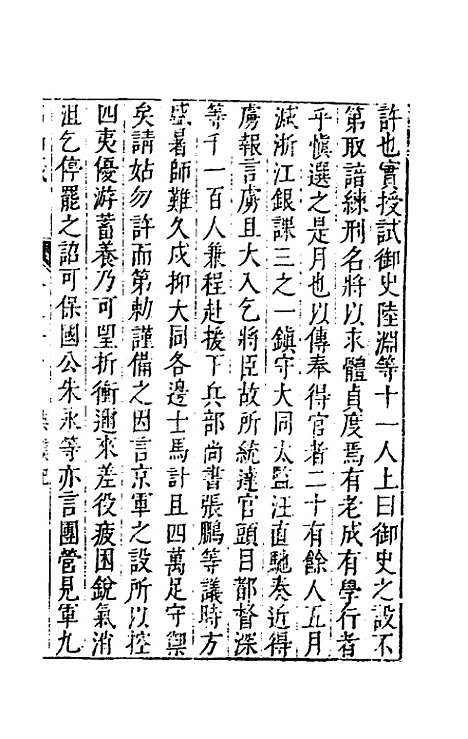 許也實授試御史陸淵等十一人上曰御史之設不
第取諳練刑名將以求體貞度焉有老成有學行者
乎慎選之是月也以傳奉得官者二十有餘人五月
減浙江銀課三之一鎮守大同太監汪直馳奏近得
虜報言虜且大入乞將臣故所統達官頭目都督深
等千一百人兼程赴援下兵部尚書張鵬等議時方
盛暑師難久戍抑大同各邊士馬計且四萬足守禦
矣請姑勿許而第勅謹備之因言京軍之設所以控
四夷優游蓄養乃可望折衝邇來差役疲困銳氣消
沮乞停罷之詔可保國公朱永等亦言團營見軍九